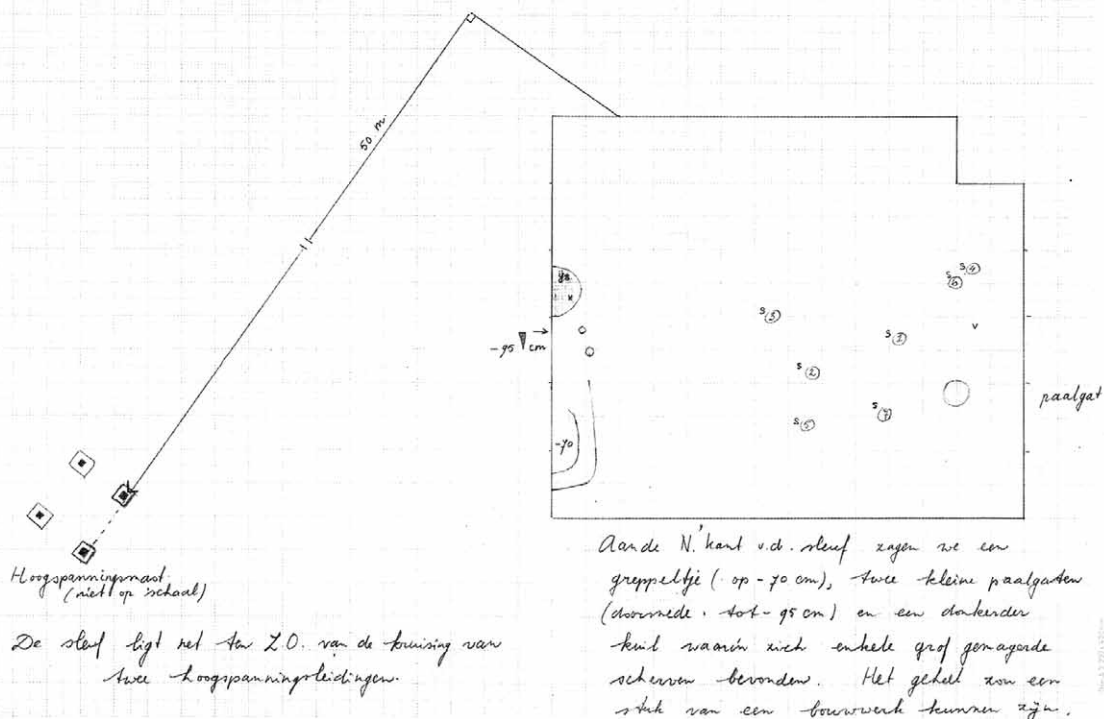 50 m.
-95 cm
-70
s 3
s 4
s 6
s 1
v
s 2
s 7
s 5
paalgat
Hoogspanningsmast.
(niet op schaal)
De sleuf ligt net ten Z.O. van de kruising van
twee hoogspanningsleidingen.
Aan de N. kant v.d. sleuf zagen we een
greppeltje (op -70 cm), twee kleine paalgaten
(doorsnede. tot -95 cm) en een donkerder
kuil waarin zich enkele grof gemagerde
scherven bevonden. Het geheel zou een
stuk van een bouwwerk kunnen zijn.